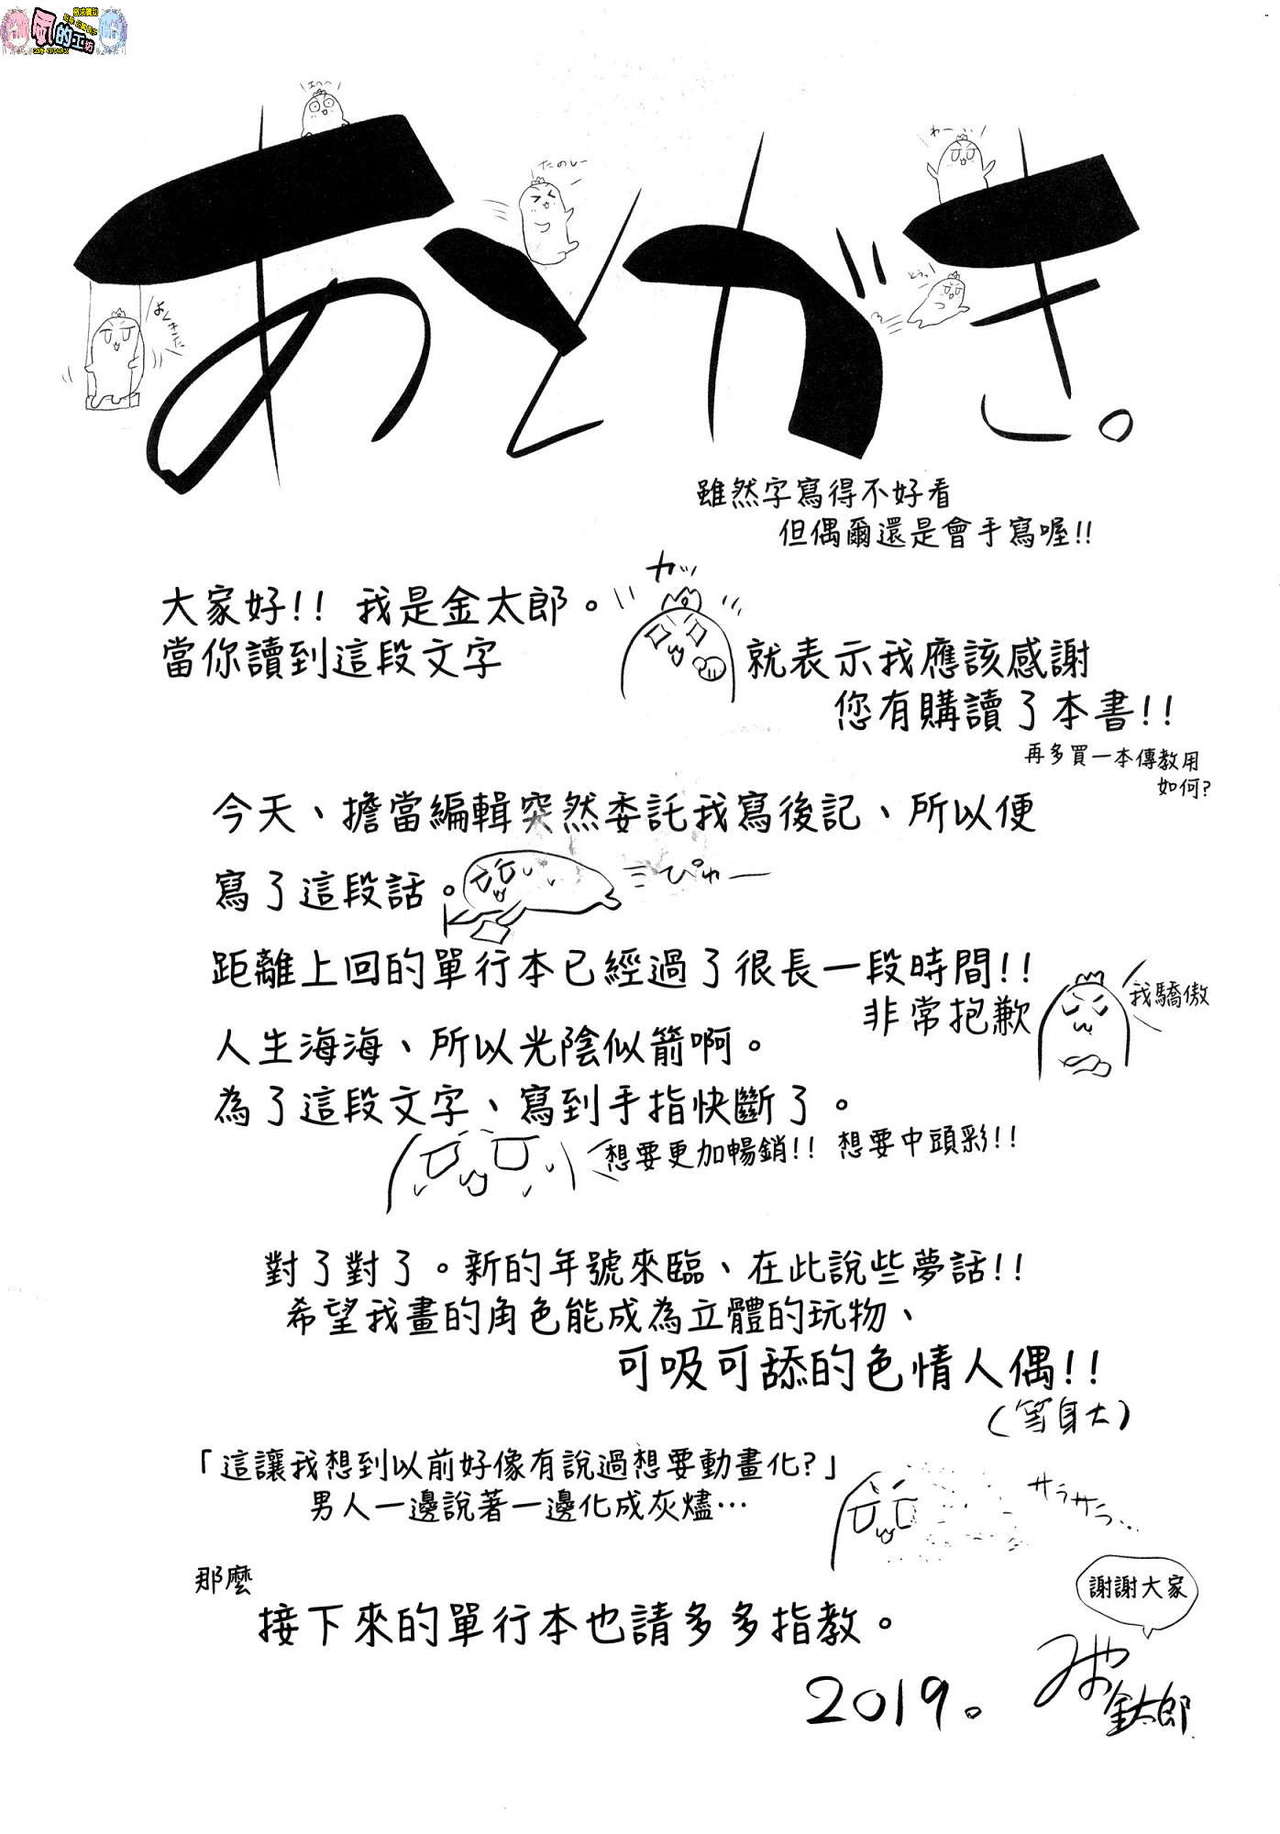 風的工坊
えへへ
たのしー
わーい
とぅっ
あとがき。
雖然字寫得不好看
但偶爾還是會手寫喔!!
大家好!! 我是金太郎。
ガッ
當你讀到這段文字
就表示我應該感謝
您有購讀了本書!!
再多買一本傳教用
如何?
今天、擔當編輯突然委託我寫後記、所以便
寫了這段話。
ぴゅー
距離上回的單行本已經過了很長一段時間!!
非常抱歉
我驕傲
人生海海、所以光陰似箭啊。
為了這段文字、寫到手指快斷了。
想要更加暢銷!! 想要中頭彩!!
對了對了。新的年號來臨、在此說些夢話!!
希望我畫的角色能成為立體的玩物、
可吸可舔的色情人偶!!
(等身大)
「這讓我想到以前好像有說過想要動畫化?」
男人一邊說著一邊化成灰燼…
サラサラ…
那麼
接下來的單行本也請多多指教。
謝謝大家
2019。
金太郎